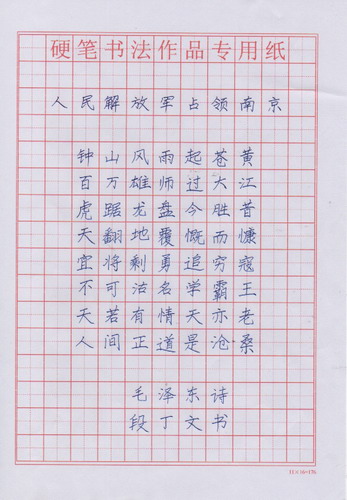 硬笔书法作品专用纸
人民解放军占领南京
钟山风雨起苍黄
百万雄师过大江
虎踞龙盘今胜昔
天翻地覆慨而慷
宜将剩勇追穷寇
不可沽名学霸王
天若有情天亦老
人间正道是沧桑
毛泽东诗
段丁文书
11×16=176